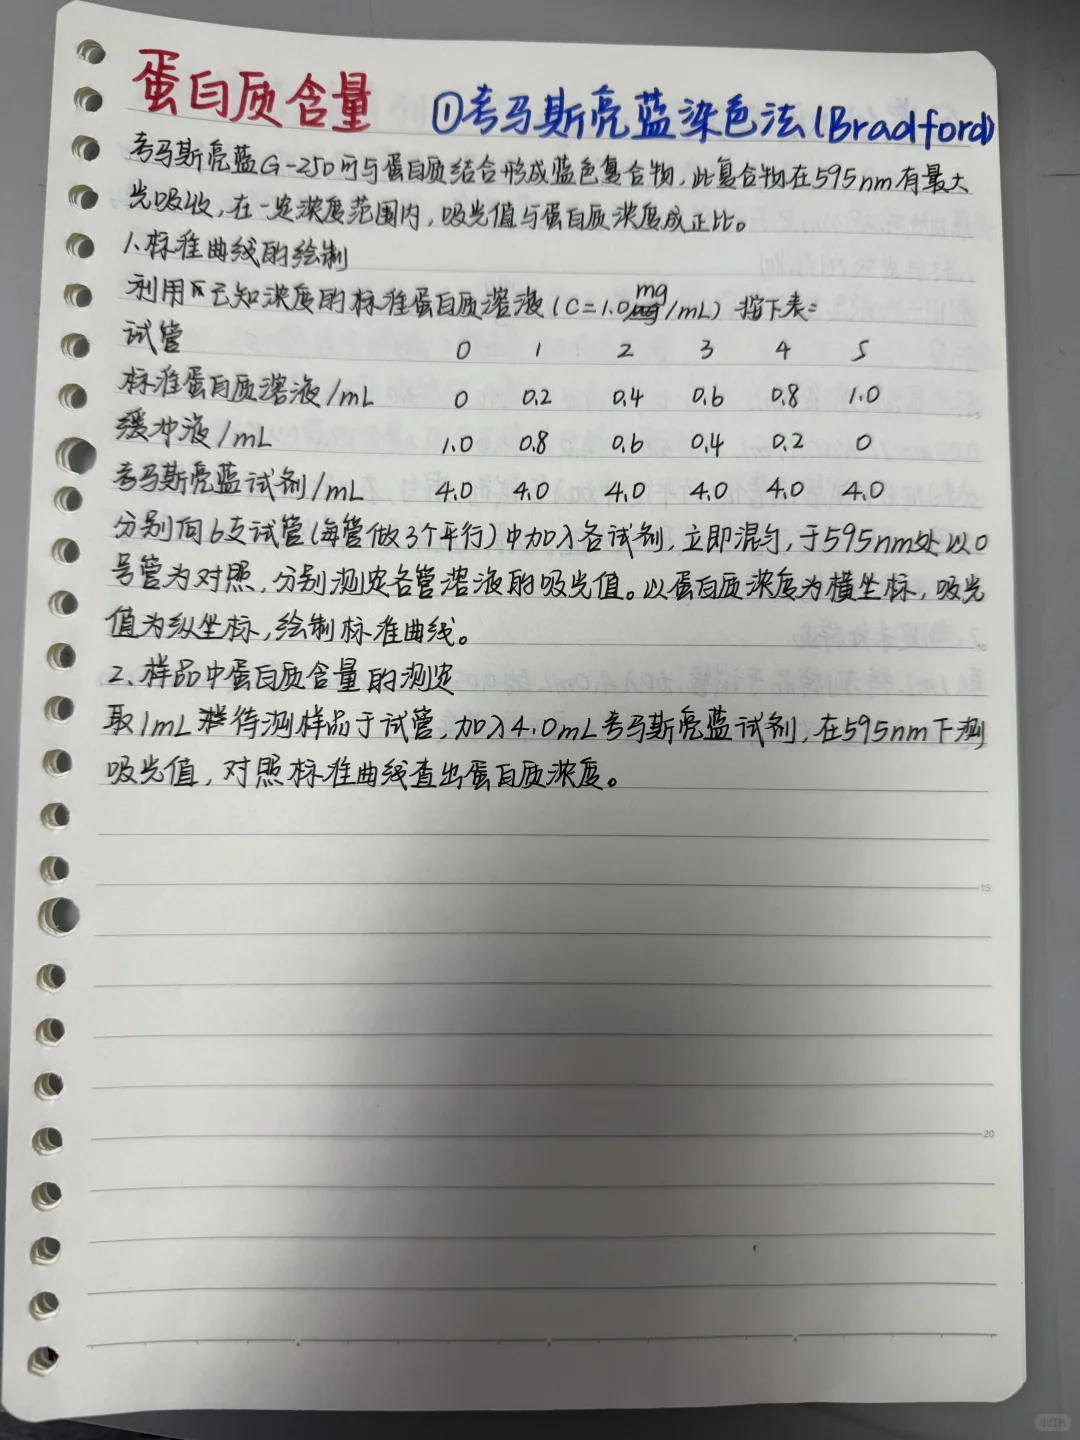 蛋白质含量 ①考马斯亮蓝染色法(Bradford)
考马斯亮蓝G-250可与蛋白质结合形成蓝色复合物,此复合物在595nm有最大
光吸收,在一定浓度范围内,吸光值与蛋白质浓度成正比。
1.标准曲线的绘制
利用已知浓度的标准蛋白质溶液(C=1.0mg/mL)按下表:
试管 0 1 2 3 4 5
标准蛋白质溶液/mL 0 0.2 0.4 0.6 0.8 1.0
缓冲液/mL 1.0 0.8 0.6 0.4 0.2 0
考马斯亮蓝试剂/mL 4.0 4.0 4.0 4.0 4.0 4.0
分别向6支试管(每管做3个平行)中加入各试剂,立即混匀,于595nm处以0
号管为对照,分别测定各管溶液的吸光值。以蛋白质浓度为横坐标,吸光
值为纵坐标,绘制标准曲线。
2.样品中蛋白质含量的测定
取1mL待测样品于试管,加入4.0mL考马斯亮蓝试剂,在595nm下测
吸光值,对照标准曲线查出蛋白质浓度。
15
20